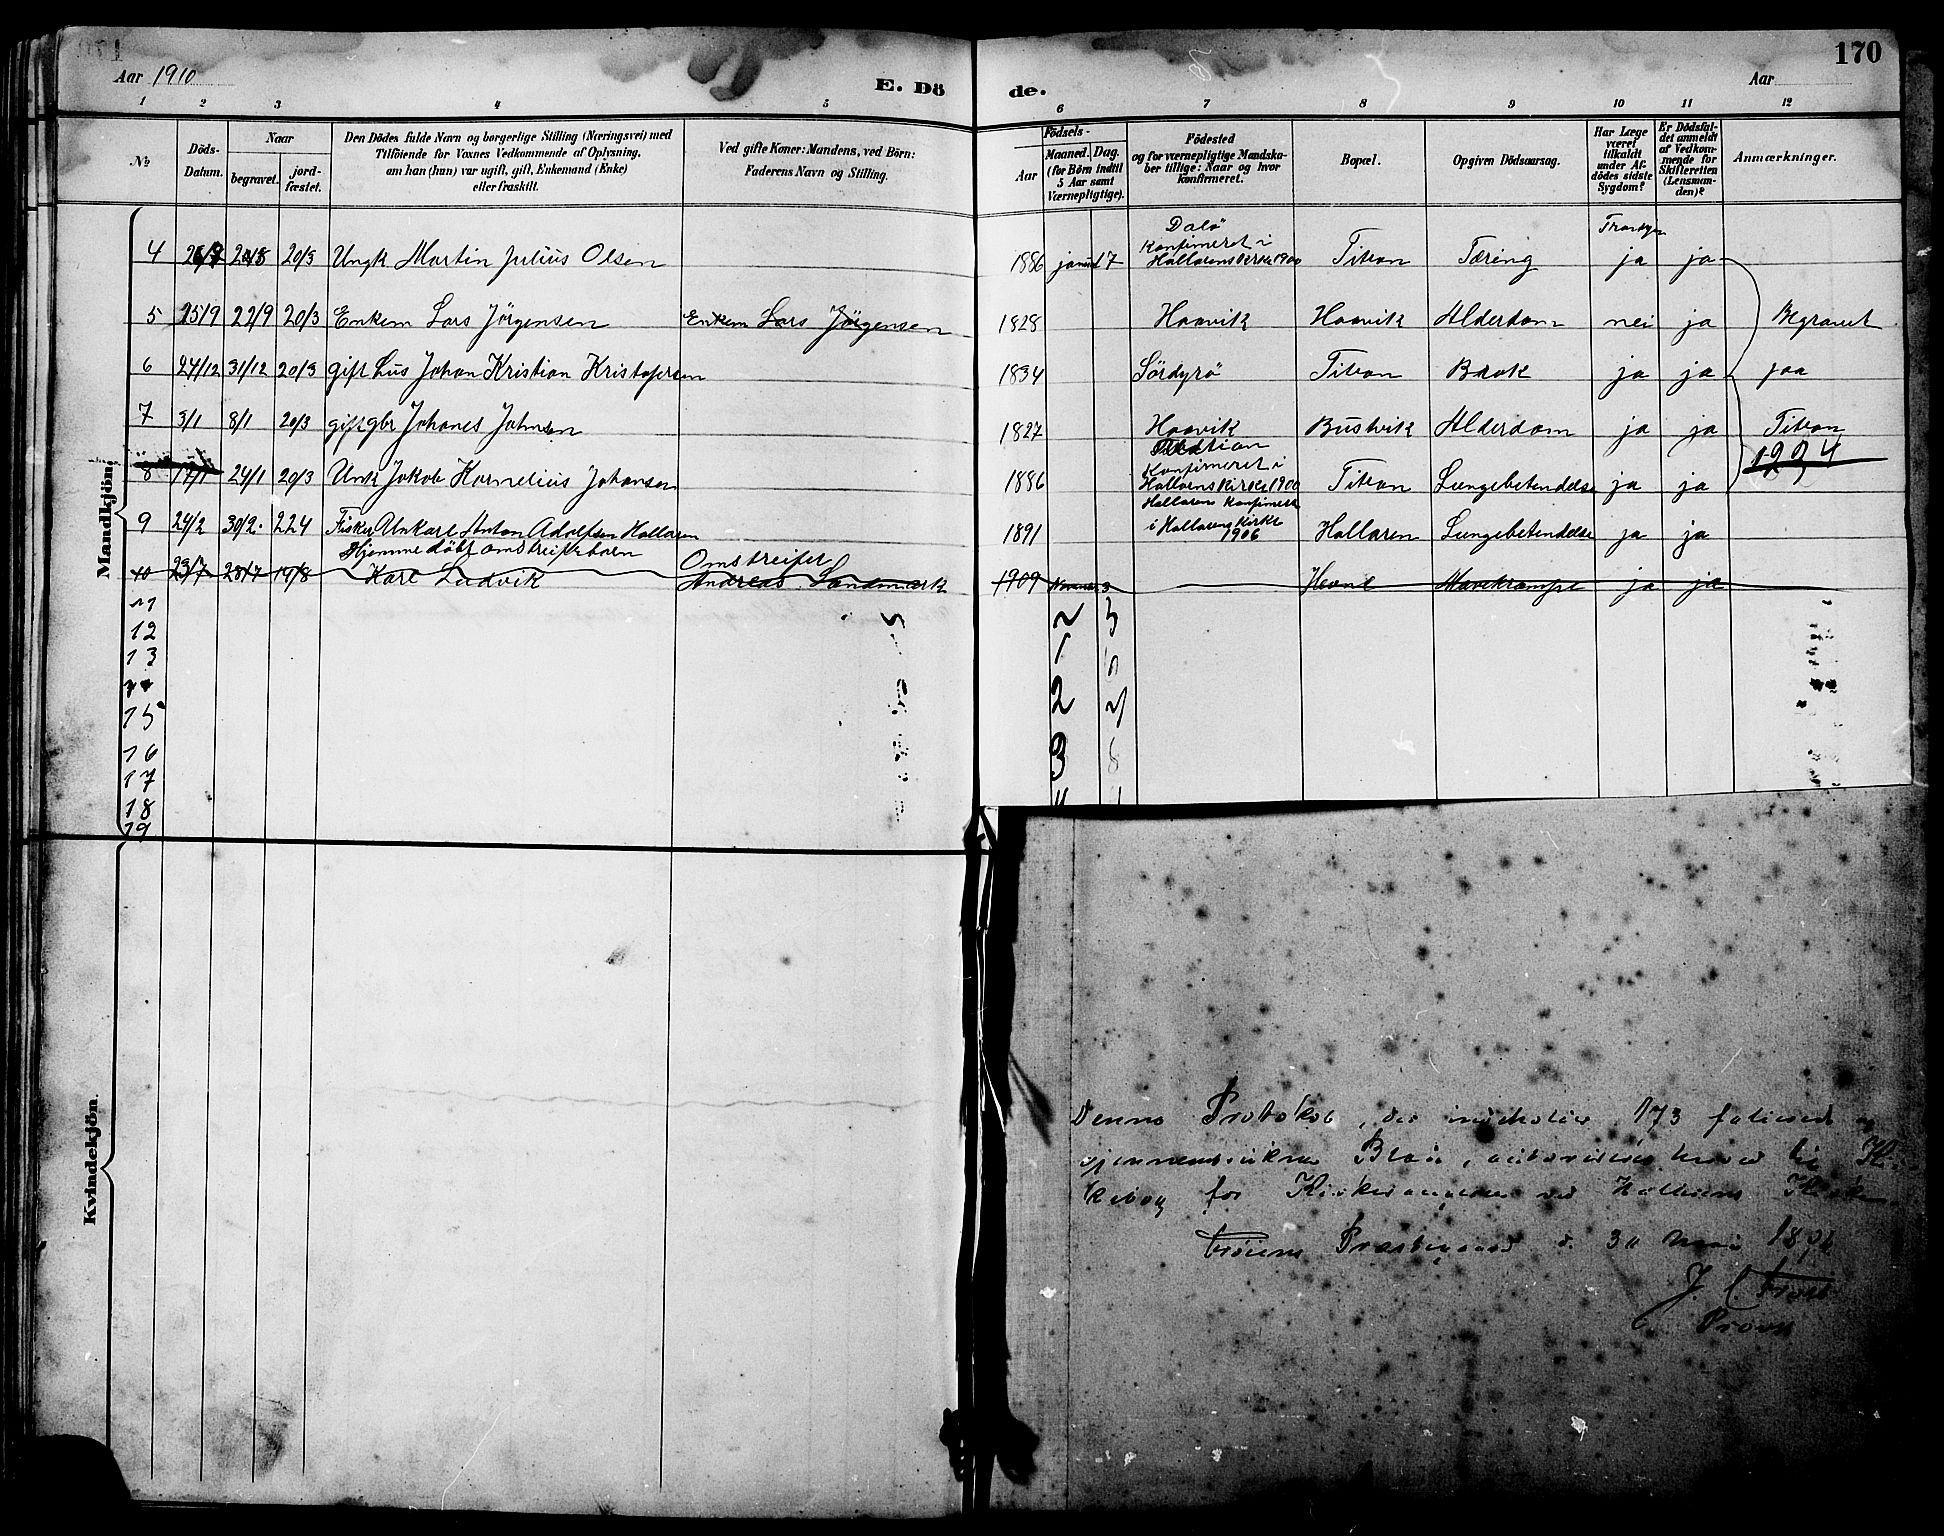 170
Aar 1910
E. Dö de.
Aar
1 2 3 4 5 6 7 8 9 10 11 12
№
Döds-Datum.
Naar
begravet.
jord-fæstet.
Den Dödes fulde Navn og borgerlige Stilling (Næringsvei) med
Tilföiende for Voxnes Vedkommende af Oplysning,
om han (hun) var ugift, gift, Enkemand (Enke)
eller fraskilt.
Ved gifte Koner: Mandens, ved Börn:
Faderens Navn og Stilling.
Födsels-
Aar
Maaned. Dag.
(for Börn indtil
5 Aar samt
Værnepligtige).
Födested
og for værnepligtige Mandska-
ber tillige: Naar og hvor
konfirmeret.
Bopæl.
Opgiven Dödsaarsag.
Har Læge
været
tilkaldt
under Af-
dödes sidste
Sygdom?
Er Dödsfal-
det anmeldt
af Vedkom-
mende for
Skifteretten
(Lensman-
den)?
Anmærkninger.
Mandkjön.
4 20/3 Ungk Martin Julius Olsen 1886 17 Dalö Konfirmeret i Hallarens Kirke 1900 Titran Tæring ja ja
5 15/9 22/9 20/3 Enkem Lars Jörgensen Enkem Lars Jörgensen 1828 Haavik Haavik Alderdom nei ja Begravet
6 27/12 31/12 20/3 gift Hus Johan Kristian Kristofersen 1834 Sördyrö Titran Brok ja ja paa
7 3/1 8/1 20/3 gift gbr Johanes Johnsen 1827 Haavik Bustvik Alderdom ja ja Titran
1224
8 17/1 24/1 20/3 Unk Jakob Kornelius Johansen 1886 Konfirmeret i Hallarens Kirke 1900 Titran Lungebetendelse ja ja
9 24/2 30/2. 224 Fisker Unkarl Anton Adolfsen Hallaren 1891 Hallaren Konfirmert i Hallaren Kirke 1906 Hallaren Lungebetendelse ja ja
Hjemme döbt omstreiferbarn Omstreifer
10 23/7 28/7 14/8 Karl Ludvik Andreas Landmark 1909 November 3 Hevne Mavekrampe ja ja
11
12
13
14
15
16
17
18
19
Kvindekjön.
Denne Protokol, der indeholder 173 folierede og
gjennemdragne Blade, autoriseres herved til
for ved Hallarens Kirke
Fröiens Præstegaard d. 30 Mai
J C Frost
Provst